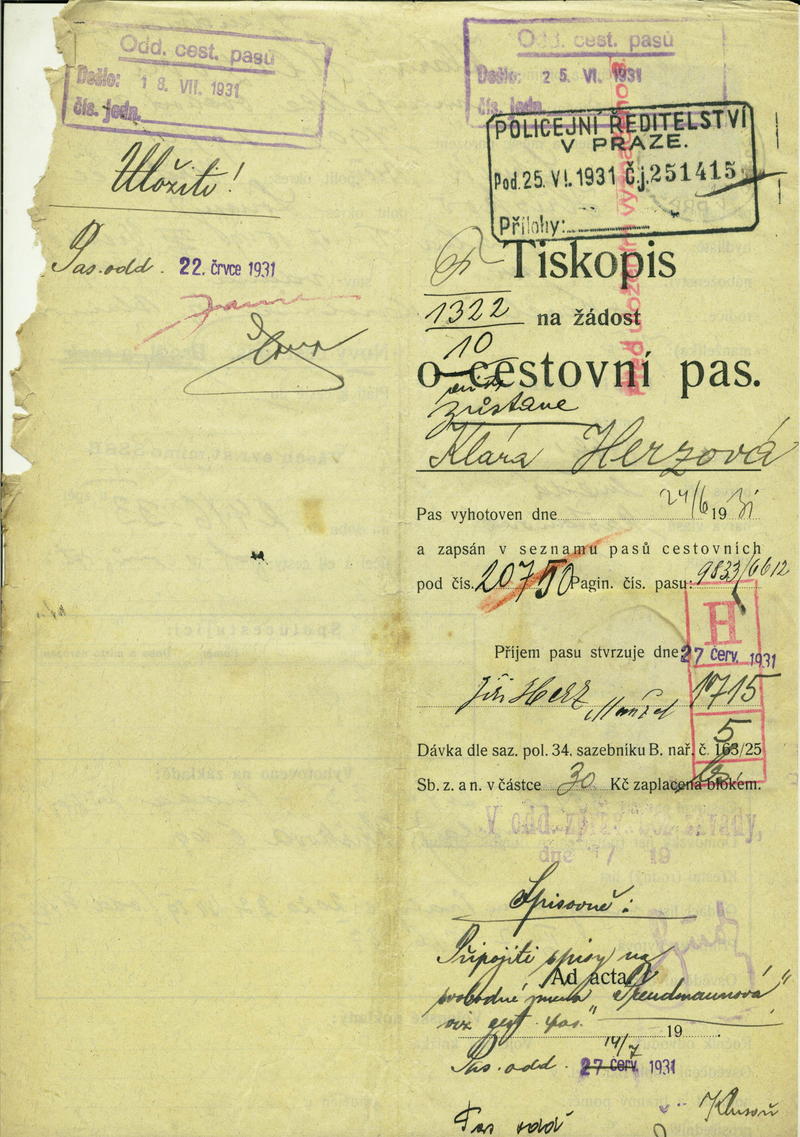 Odd. cest. pasů
Došlo: 18. VII. 1931
čís. jedn.
Uložiti!
Pas. odd. 22. črvce 1931
Odd. cest. pasů
Došlo: 25. VI. 1931
čís. jedn.
POLICEJNÍ ŘEDITELSTVÍ
V PRAZE.
Pod. 25. VI. 1931 Č.j. 251415
Přílohy:
Tiskopis
1322
na žádost
10
o cestovní pas.
zůstane
Klára Herzová
Pas vyhotoven dne 24/6 1931
a zapsán v seznamu pasů cestovních
pod čís. 20750 Pagin. čís. pasu: 9833/6612
H
Příjem pasu stvrzuje dne 27 červ. 1931
Jiří Herz Manžel 1715
5
Dávka dle saz. pol. 34. sazebníku B. nař. č. 163/25
Sb. z. a n. v částce 30 Kč zaplacena blokem.
V odd. závady,
dne 7 19
Spisovně:
Připojiti spisy na
Ad acta
svobodné jméno "Freudmannová"
pas.
19
14/7
Pas. odd. 27 červ. 1931
Pas odd